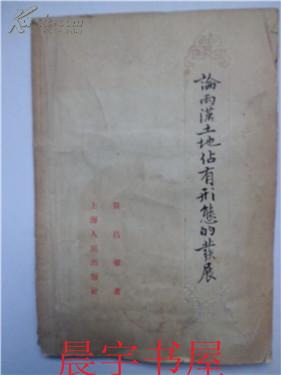 論兩漢土地佔有形態的發展
賀昌羣著
上海人民出版社
晨宇书屋